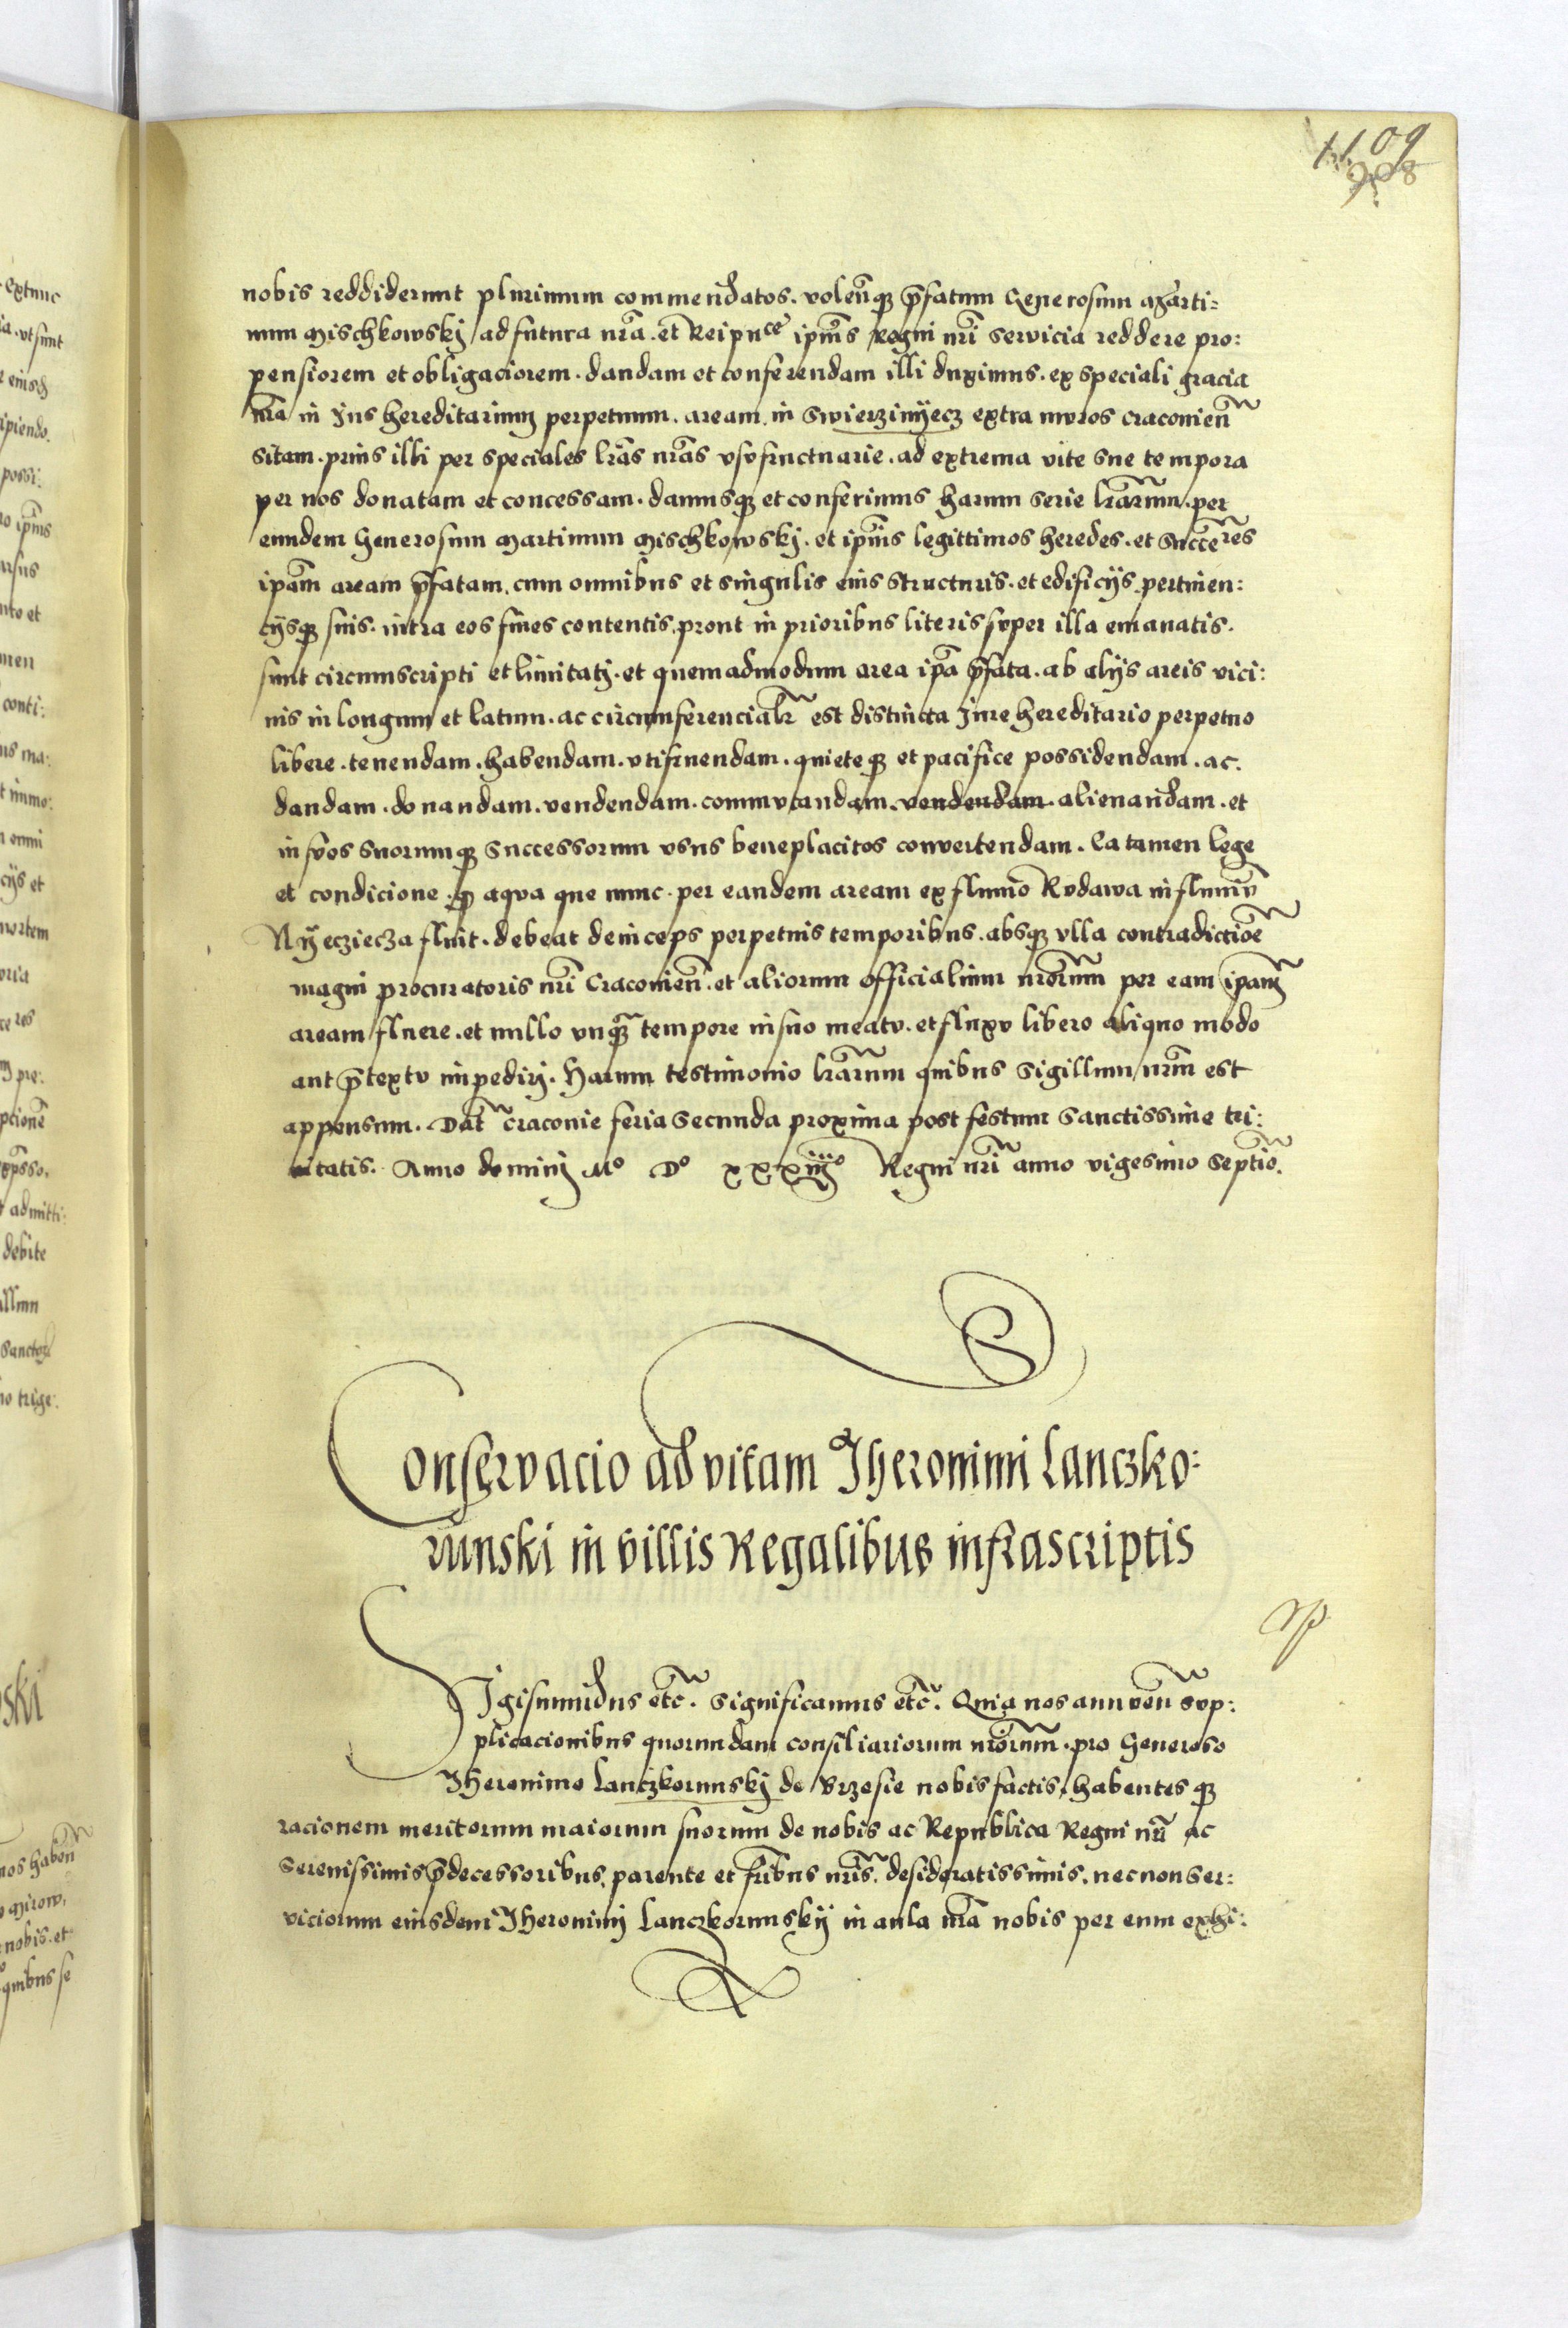 1109
908
nobis reddiderunt plurimum commendatos. volen̄q₃ p̄fatum Generosum Marti:
num Mischkowskj ad futura nr̄a. et Reipuᶜᵉ ip̄ius Regni nr̄i servicia reddere pro:
pensiorem et obligaciorem. dandam et conferendam illi duximus. ex speciali gracia
nr̄a in Jus hereditarium perpetuum. aream. in Swierzinÿecz extra muros cracovien̄
sitam. prius illi per speciales lr̄as nr̄as vsvfructuarie. ad extrema vite sue tempora
per nos donatam et concessam. damusq₃ et conferimus harum serie lr̄arum. per
eundem Generosum Martinum Mischkowskj. et ip̄ius legittimos heredes. et Succeʳᵉˢ
ip̄am aream p̄fatam. cum omnibus et singulis eius structuris. et edificijs. pertinen:
cijsq₃ suis. intra eos fines contentis. prout in prioribus literis svper illa emanatis.
sunt circumscripti et limitatj. et quemadmodum area ip̄a p̄fata. ab alijs areis vici:
nis in longum et latum. ac circumferencialr̄ est distincta Jure hereditario perpetuo
libere. tenendam. habendam. vtifruendam. quieteq₃ et pacifice possidendam. ac.
dandam. donandam. vendendam. commvtandam. vendendam. alienandam. et
in svos suorumq₃ Successorum vsus beneplacitos convertendam. Ea tamen lege
et condicione. q̄ aqva que nunc. per eandem aream ex fluuio Rvdawa in fluuiū
Nÿecziecza fluit. debeat deinceps perpetuis temporibus. absq₃ vlla contradictiōe
magni procuratoris nr̄i Cracovien̄. et aliorum officialium nr̄orum per eam ip̄am
aream fluere. et nullo vnq̄ tempore in suo meatv. et fluxv libero aliquo modo
aut p̄textv impedirj. Harum testimonio lr̄arum quibus Sigillum nr̄m est
appensum. Dat̄ Cracovie feria Secunda proxima post festum Sanctissime tri:
nitatis. Anno dominj Mº Dº xxxiiiº Regni nr̄i anno vigesimo Septīo.
Conservacio ad vitam Jheronimi Lanczko:
runski in villis Regalibus infrascriptis
Sigismundus etc̄. Significamus etc̄. Quia nos annuen̄ svp:
plicacionibus quorundam consiliariorum nr̄orum. pro Generoso
Jheronimo Lanczkorunskj de Brzesie nobis factis. habentesq₃
racionem meritorum maiorum suorum de nobis ac Republica Regni nr̄i ac
Serenissimis p̄decessoribus. parente et fr̄ibus nr̄is. desideratissimis. necnon ser:
viciorum eiusdem Jheronimj Lanczkorunskÿ in aula nr̄a nobis per eum exhi: